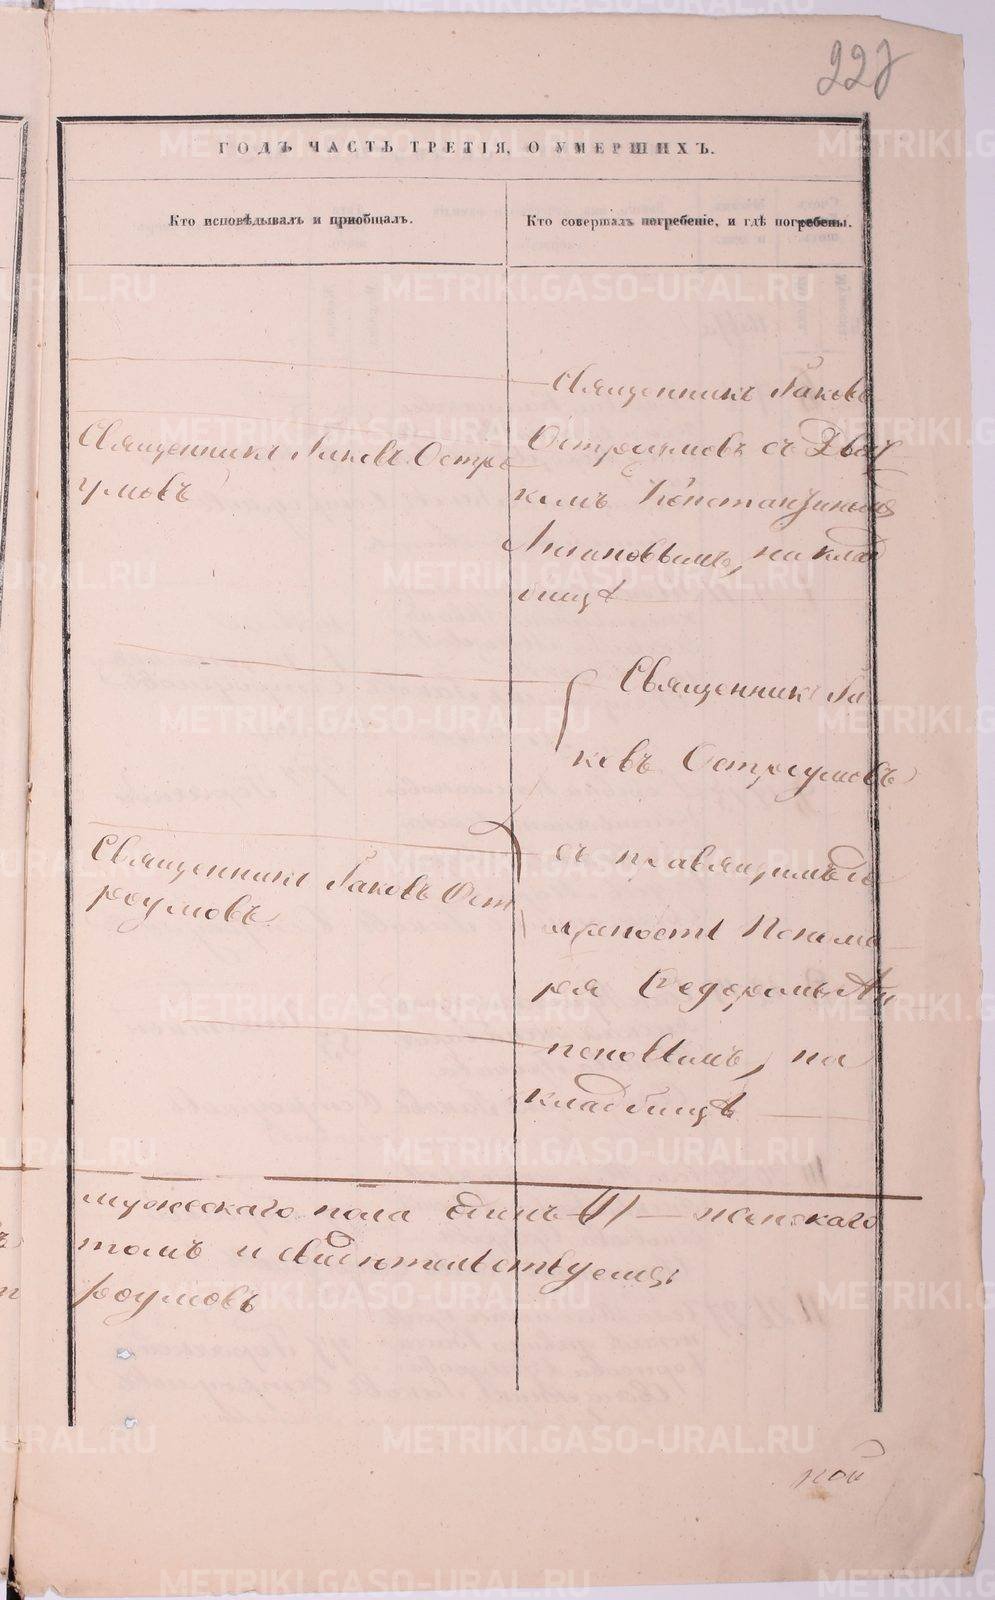 227
ГОДЪ ЧАСТЬ ТРЕТІЯ, О УМЕРШИХЪ.
Кто исповѣдывалъ и пріобщалъ.
Кто совершалъ погребеніе, и гдѣ погребены.
Священникъ Іаковъ Остро
умовъ
Священникъ Іаковъ Ост
роумовъ
Священникъ Іаковъ
Остроумовъ съ Дьяч
комъ Константиномъ
на клад
бищѣ
Священникъ Іа
ковъ Остроумовъ
съ правящимъ до
лжность Понома
ря Федоромъ
поповымъ, на
кладбищѣ
мужескаго пола одинъ /1/ — женскаго
томъ и свидѣтельствуемъ
роумовъ
ной
METRIKI.GASO-URAL.RU